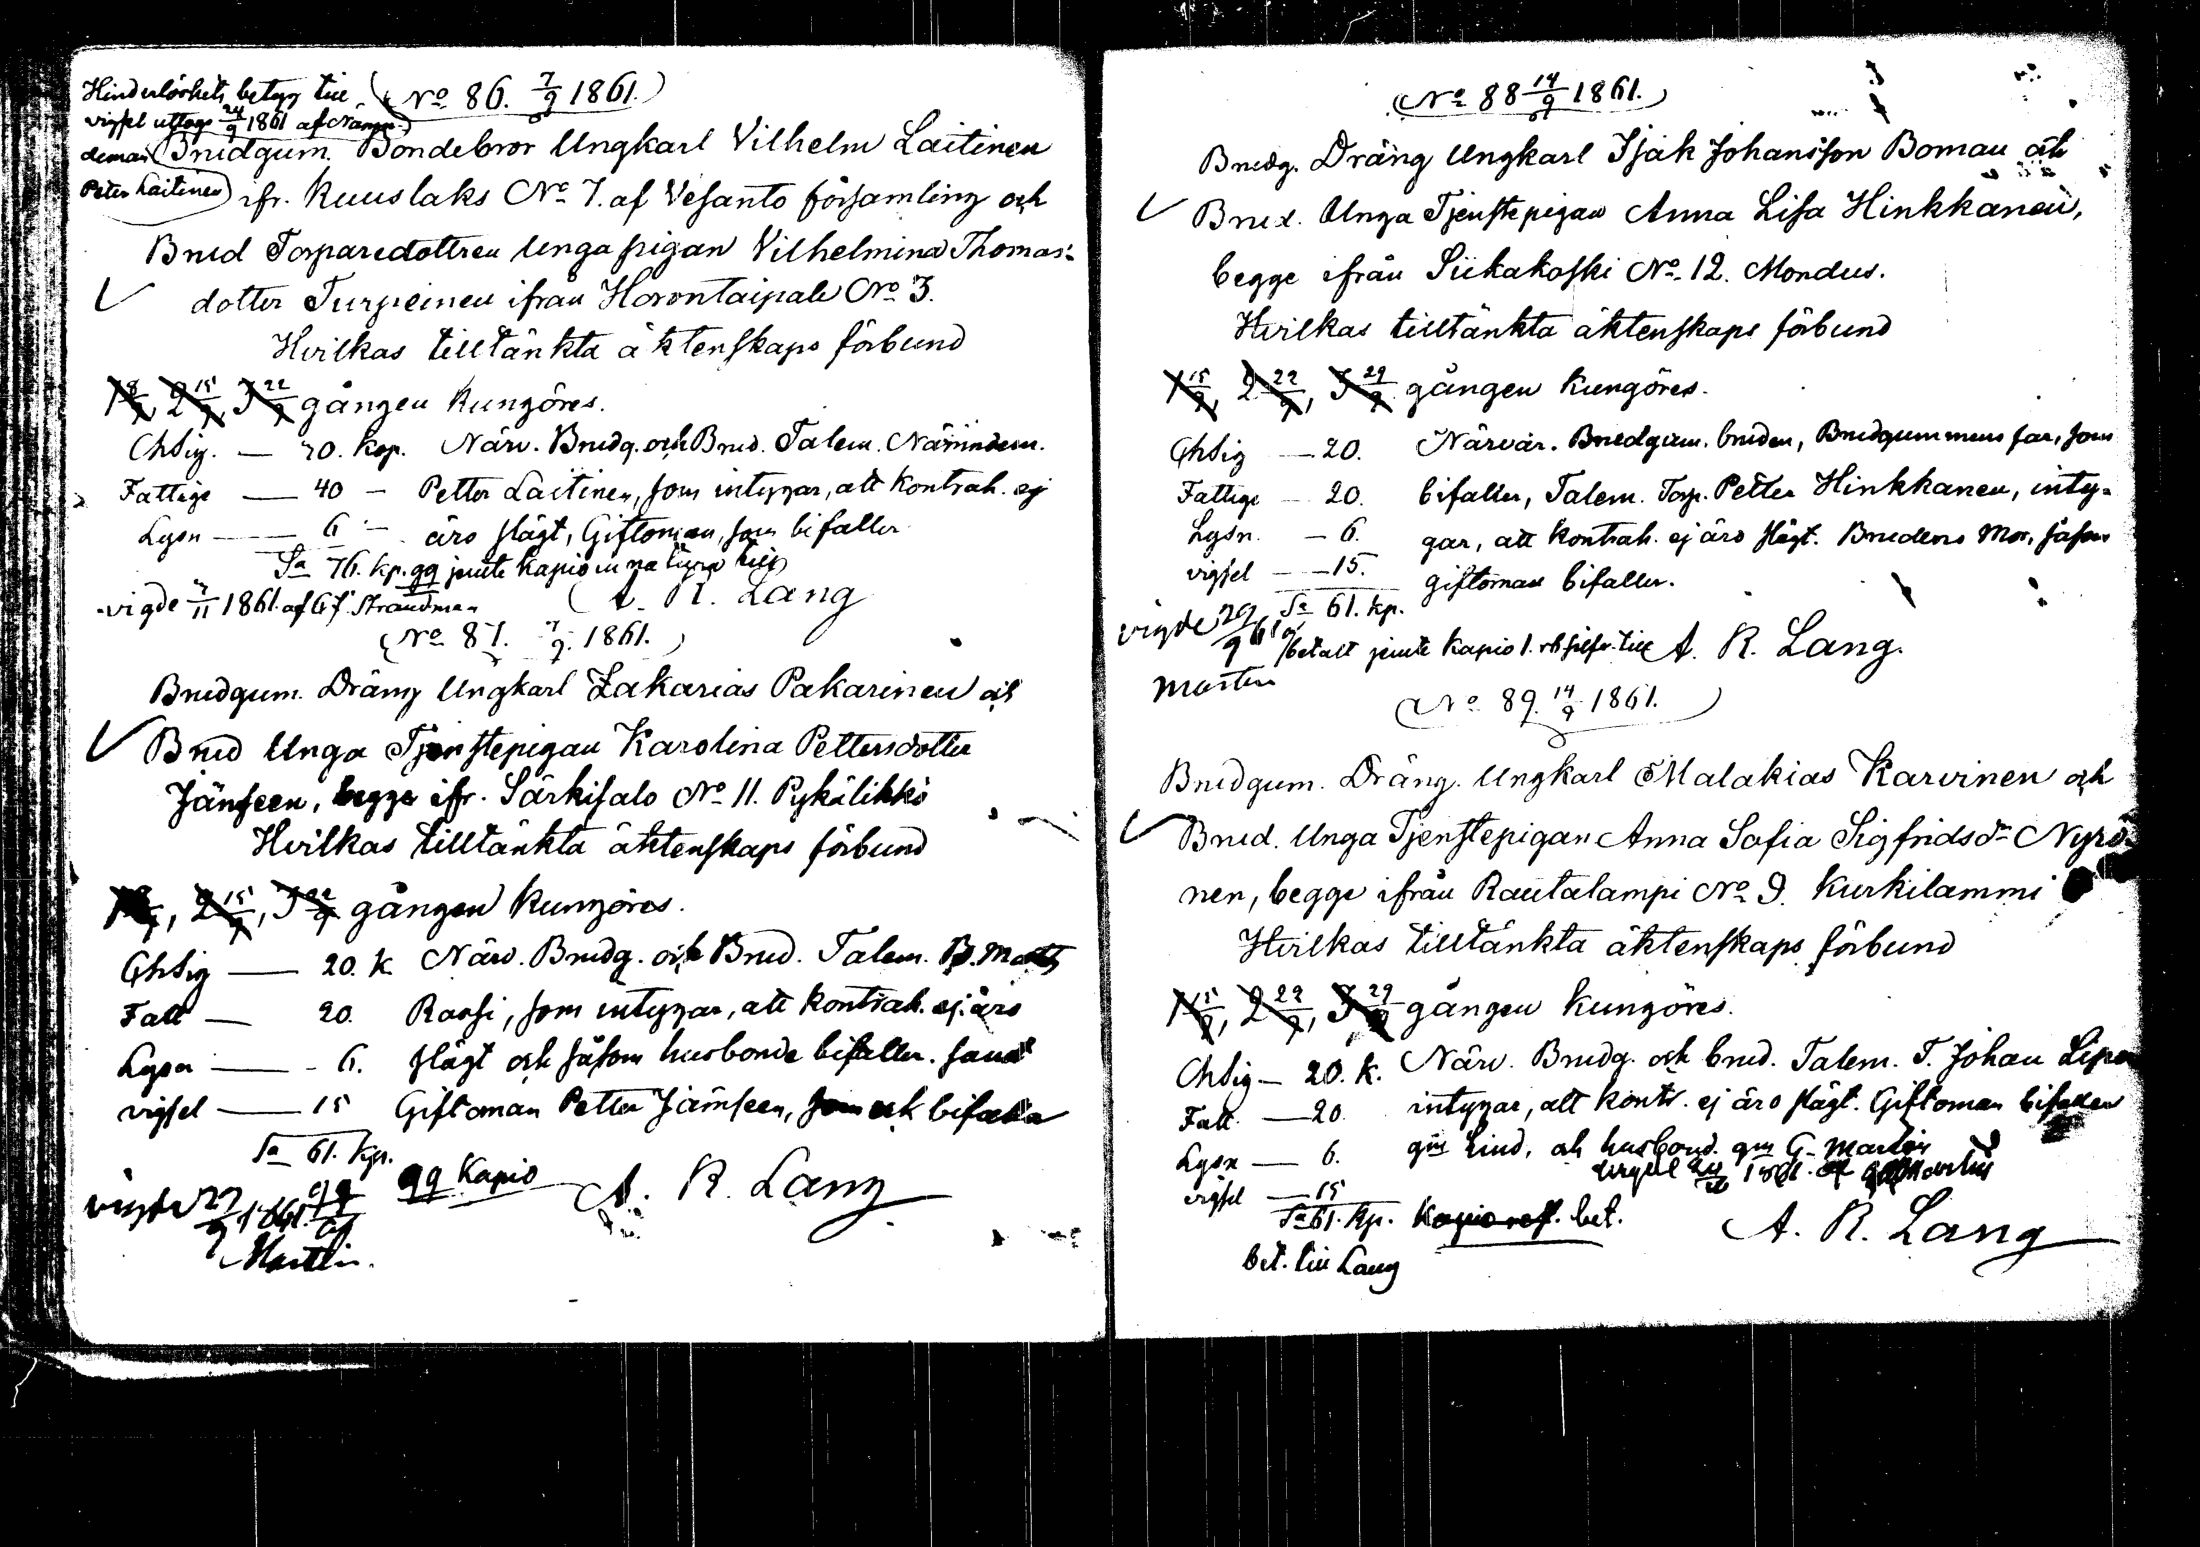 Hinderlöshets betyg till
vigsel uttogs 24/9 1861 af Nämn-
deman
Peter Laitinen
No 86. 7/9 1861.
Brudgum. Bondebror Ungkarl Vilhelm Laitinen
ifr. Kuuslaks No 7. af Vesanto församling och
Brud Torparedottren Unga pigan Vilhelmina Thomas-
dotter Turpeinen ifrån Horontaipale No 3.
Hvilkas tilltänkta äktenskaps förbund
1 8/9, 2 15/9, 3 22/9 gången kungöres.
Chsig. — 20. kop. Närv. Brudg. och Brud. Talem. Nämndem.
Fattige — 40 — Petter Laitinen, som intygar, att kontrah. ej
Lysn — 6 — äro slägt, Giftoman, som bifaller
Sa 76. kp. gg jemte kapio
A. R. Lang
vigde 7/11 1861. af G f. Strandman
No 87. 7/9. 1861.
Brudgum. Dräng Ungkarl Zakarias Pakarinen och
Brud Unga Tjenstepigan Karolina Pettersdotter
Jämseen, begge ifr. Särkisalo No 11. Pykälikkö
Hvilkas tilltänkta äktenskaps förbund
1 8/9, 2 15/9, 3 22/9 gången kungöres.
Chsig — 20. k Närv. Brudg. och Brud. Talem. B. Matts
Fatt — 20. Raasi, som intygar, att kontrah. ej äro
Lysn — 6. slägt och såsom husbonde bifaller. samt
vigsel — 15 Giftoman Petter Jämseen, som ock bifaller
Sa 61. kp.
gg Kapio
A. R. Lang
vigde 29/9 1861. gg
Martin.
No 88 14/9 1861.
Brudg. Dräng Ungkarl Isak Johansson Boman och
Brud. Unga Tjenstepigan Anna Lisa Hinkkanen,
begge ifrån Siikakoski No 12. Mondus.
Hvilkas tilltänkta äktenskaps förbund
1 15/9, 2 22/9, 3 29/9 gången kungöres.
Chsig — 20. Närvar. Brudgum. bruden, Brudgummens far, som
Fattige — 20. bifaller, Talem. Torp. Petter Hinkkanen, inty-
Lysn. — 6. gar, att kontrah. ej äro slägt. Brudens Mor, såsom
vigsel — 15. giftoman bifaller.
Sa 61. kp.
vigde 29/9 61 af
Martin
betalt jemte kapio 1. rb silfr. till A. R. Lang.
No 89. 14/9 1861.
Brudgum. Dräng. Ungkarl Malakias Karvinen och
Brud. Unga Tjenstepigan Anna Sofia Sigfridsdr Nyrö-
nen, begge ifrån Rautalampi No 9. Kurkilammi
Hvilkas tilltänkta äktenskaps förbund
1 15/9, 2 22/9, 3 29/9 gången kungöres.
Chsig — 20. k. Närv. Brudg. och brud. Talem. T. Johan
Fatt. — 20. intygar, att kontr. ej äro slägt. Giftoman bifaller
Lysn — 6. gm Lind, och husbond. gm G. Martin
vigsel — 15
Sa 61. kp. bet.
A. R. Lang
bet. till Lang